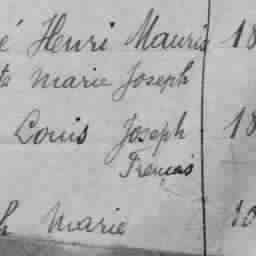 é Henri Mauris 18
te Marie Joseph
Louis Joseph 18
Français
h Marie 10